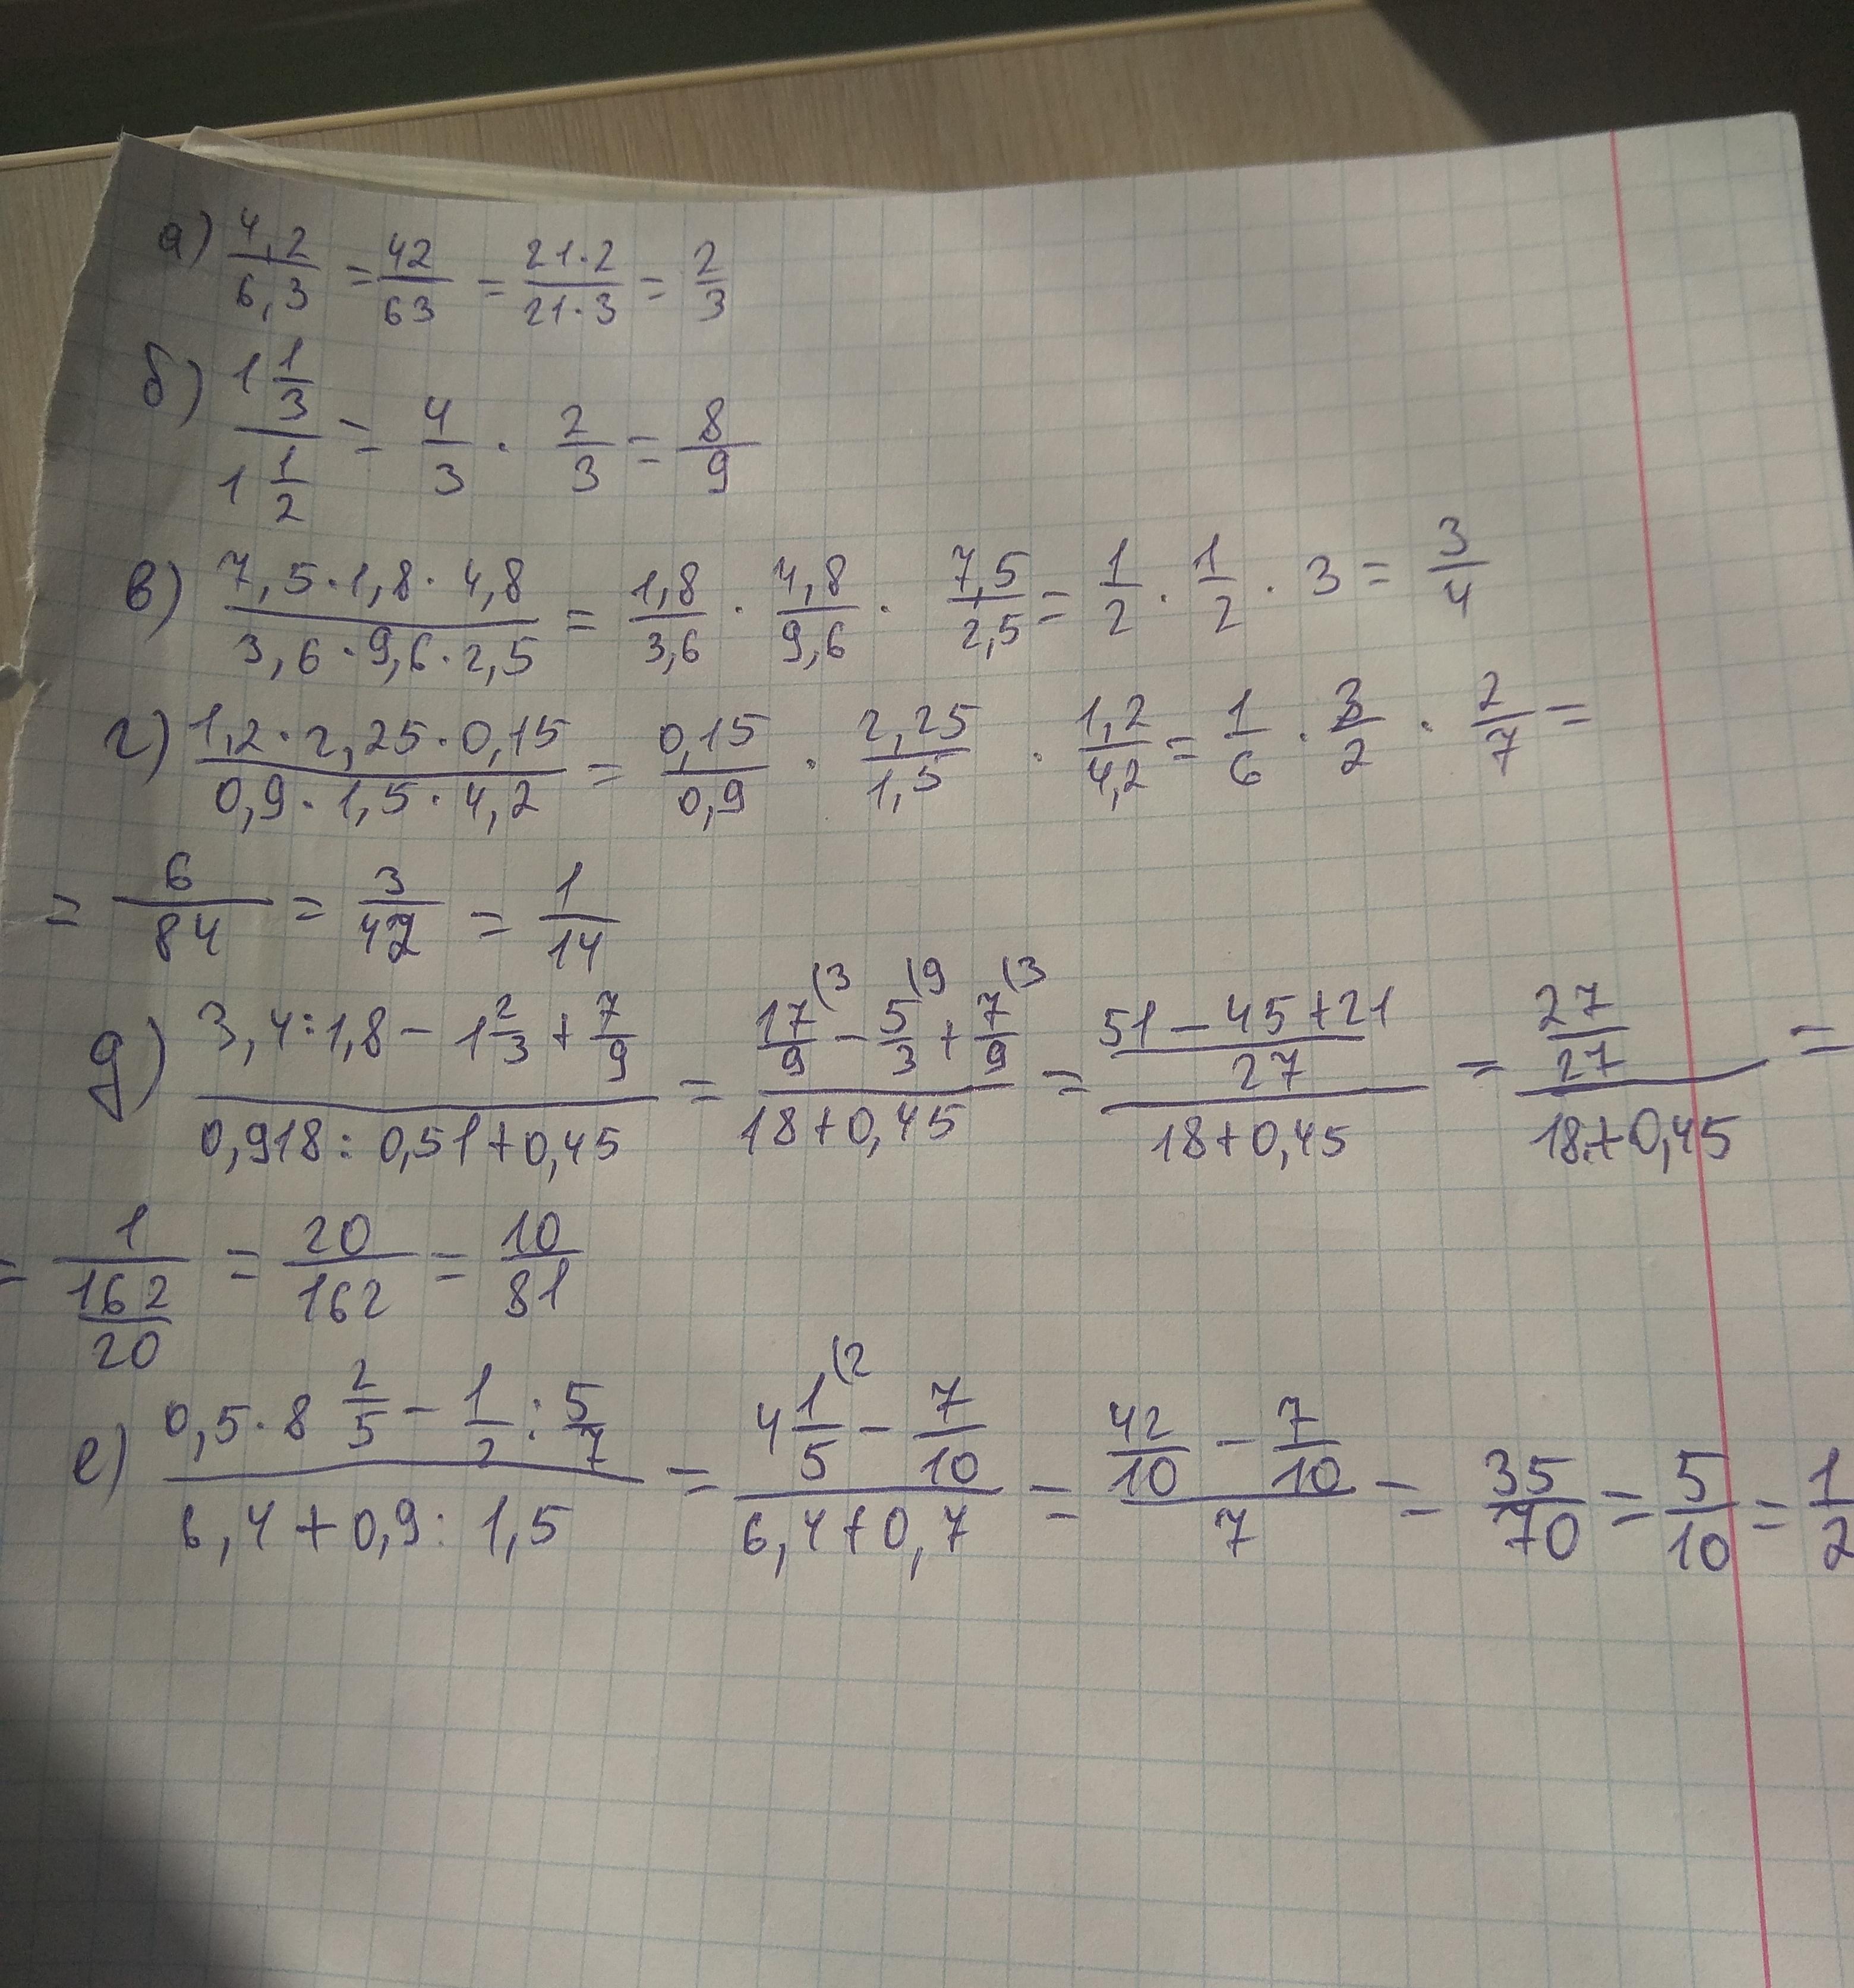 а) 4,2/6,3 = 42/63 = 21·2/21·3 = 2/3
б) 1 1/3 / 1 1/2 = 4/3 · 2/3 = 8/9
в) 7,5·1,8·4,8 / 3,6·9,6·2,5 = 1,8/3,6 · 4,8/9,6 · 7,5/2,5 = 1/2 · 1/2 · 3 = 3/4
г) 1,2·2,25·0,15 / 0,9·1,5·4,2 = 0,15/0,9 · 2,25/1,5 · 1,2/4,2 = 1/6 · 3/2 · 2/7 =
= 6/84 = 3/42 = 1/14
д) 3,4:1,8 - 1 2/3 + 7/9 / 0,918:0,51+0,45 = 17/9 (3 - 5/3 (9 + 7/9 (3 / 18+0,45 = 51-45+21/27 / 18+0,45 = 27/27 / 18+0,45 =
= 1 / 162/20 = 20/162 = 10/81
е) 0,5·8 2/5 - 1/2 : 5/7 / 6,4+0,9:1,5 = 4 1/5 (2 - 7/10 / 6,4+0,7 = 42/10 - 7/10 / 7 = 35/70 = 5/10 = 1/2